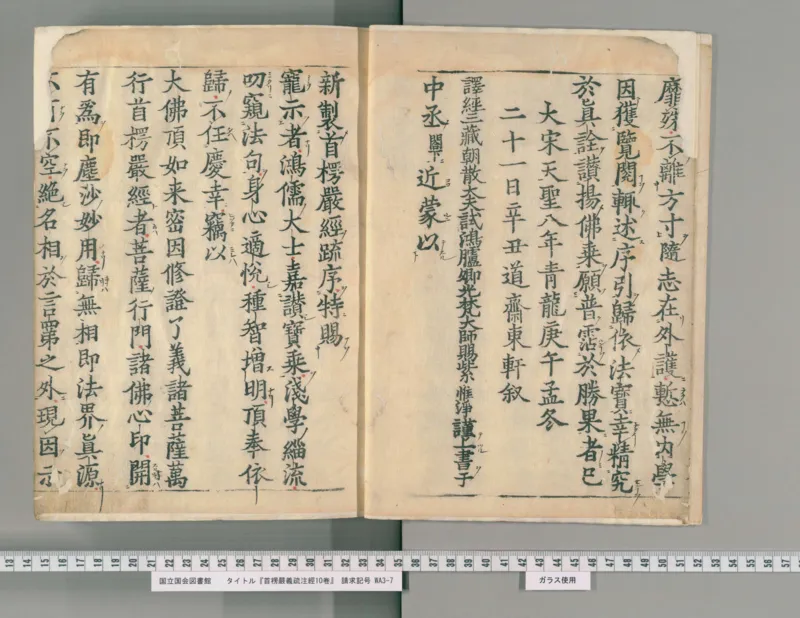 靡不離方寸隨志在外護慙無内學
因獲覽閱輒述序引歸依法寶幸精究
於眞詮讃揚佛乗願普霑於勝果者巳
大宋天聖八年青龍庚午孟冬
二十一日辛丑道齋東軒叙
譯經三藏朝散大夫試鴻臚卿光梵大師賜紫惟淨謹上書于
中丞閣下近蒙以
新製首楞嚴經䟽序特賜
寵示者鴻儒大士嘉讃寶乗淺學緇流
叨窺法句身心適恱種智增明頂奉依
歸不任慶幸竊以
大佛頂如来密因修證了義諸菩薩萬
行首楞嚴經者菩薩行門諸佛心印開
有爲即塵沙妙用歸無相即法界眞源
不空絶名相於言罤之外現因示
国立国会図書館 タイトル『首楞嚴義疏注經10巻』 請求記号 WA3-7
ガラス使用